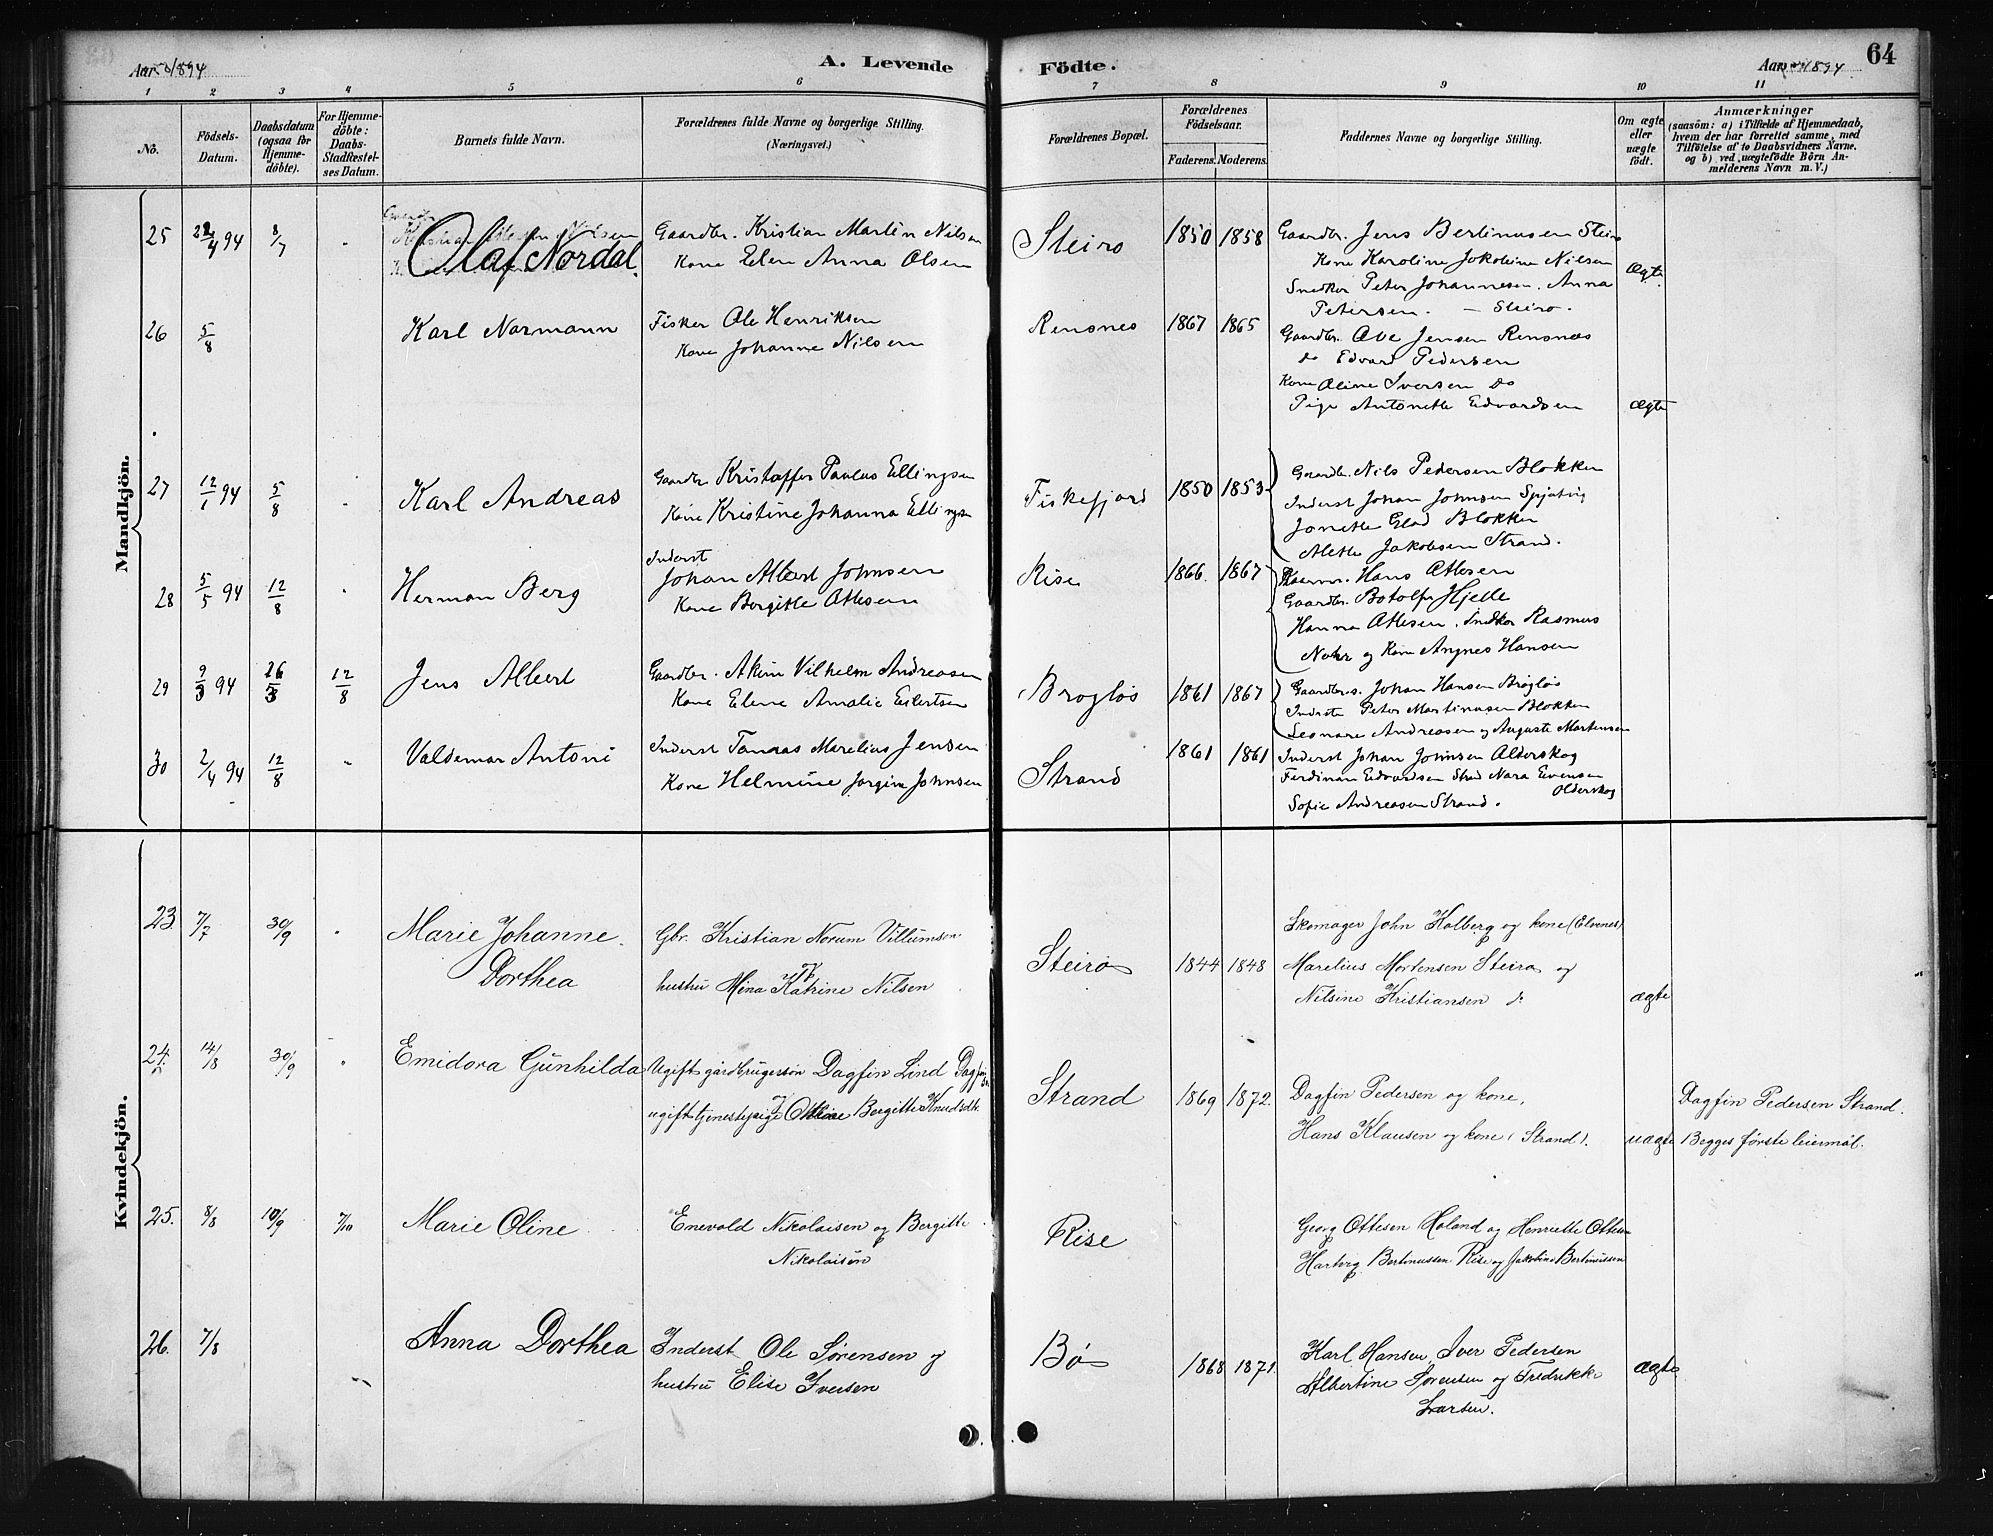 Aar 1894
A. Levende
Födte.
Aar 1894
64
1 2 3 4 5 6 7 8 9 10 11
No.
Födsels-Datum.
Daabsdatum (ogsaa för Hjemme-döbte).
For Hjemme-döbte: Daabs-Stadfæstel-ses Datum.
Barnets fulde Navn.
Forældrenes fulde Navne og borgerlige Stilling.
(Næringsvei.)
Forældrenes Bopæl.
Forældrenes Födselsaar.
Faderens. Moderens.
Faddernes Navne og borgerlige Stilling.
Om ægte eller uægte födt.
Anmærkninger
(saasöm: a) i Tilfælde af Hjemmedaab,
hvem der har forrettet samme, med
Tilföielse af to Daabsvidners Navne,
og b) ved uægtefödte Börn An-
melderens Navn m. V.)
Mandkjön.
25 22/4 94 8/7 Olaf Nordal.
Gaardbr. Kristian Martin Nilsen
Kone Elen Anna Olsen
Steiro 1850 1858
Gaardbr. Jens Bertinusen Steiro
Kone Karoline Jakobine Nilsen
Snedker Peter Johannesen. Anna
Petersen. — Steiro.
Ægte.
26 5/8 Karl Normann
Fisker Ole Henriksen
Kone Johanne Nilsen
Rensnes 1867 1865
Gaardbr. Ole Jensen Rensnes
do Edvard Pedersen
Kone Oline Iversen do
Pige Antonette Edvardsen
Ægte
27 12/1 94 5/8 Karl Andreas
Gaardbr Kristoffer Paulus Ellingsen
Kone Kristine Johanna Ellingsen
Fiskefjord 1850 1853
Gaardbr. Nils Pedersen Blokken
Inderst Johan Johnsen Spjutvig
Jonette Glad Blokken
Alette Jakobsen Strand.
28 5/5 94 12/8 Herman Berg
Inderst
Johan Albert Johnsen
Kone Bergitte Ottesen
Rise 1866. 1867
Hans Ottesen
Gaardbr. Botolf Hjelle
Hanna Ottesen. Snedker Rasmus
Nohr og Kone Angnes Hansen
29 9/3 94 26/3 12/8 Jens Albert
Gaardbr. Akim Vilhelm Andreasen
Kone Elene Amalie Eilertsen
Brogløs 1861 1867
Gaardbr. Johan Hansen Brogløs
Inderste Peter Martinusen Blokken
Leonare Andreasen og Auguste Martensen
30 2/4 94 12/8 Valdemar Antoni
Inderst Tomas Marelius Jensen
Kone Helmine Jorgine Johnsen
Strand 1861 1861
Inderst Johan Johnsen Alderskog
Ferdinan Edvardsen Strad Nara Evensen
Olderskog
Sofie Andreasen Strand.
Kvindekjön.
23. 7/7 30/9 Marie Johanne
Dorthea
Gbr. Kristian Norum Villumsen
hustru Mina Katrine Nilsen
Steirø 1844 1848
Skomager John Kolberg og kone (Elvenes)
Marelius Mortensen Steiro og
Nilsine Kristiansen d:
ægte
24. 14/8 30/9 Emidora Gunhilda
Ugift gårdbrugersøn Dagfin Lind
ugift tjenestepige Otline Bergitte Knudsdtr.
Strand 1869 1872.
Dagfin Pedersen og kone,
Hans Klausen og kone (Strand).
uægte
Dagfin Pedersen Strand.
Begges første leiermål.
25. 8/8 10/9 7/10 Marie Oline
Enevold Nikolaisen og Bergitte
Nikolaisen
Rise
Georg Ottesen Holand og Henriette Ottesen
Hartvig Bertinussen Rise og Jakobine Bertinussen
26. 7/8 Anna Dorthea
Inderst Ole Sørensen og
hustru Elise Iversen
Bø 1868 1871.
Karl Hansen Iver Pedersen
Albertine Sørensen og Fredrikke
Larsen.
ægte